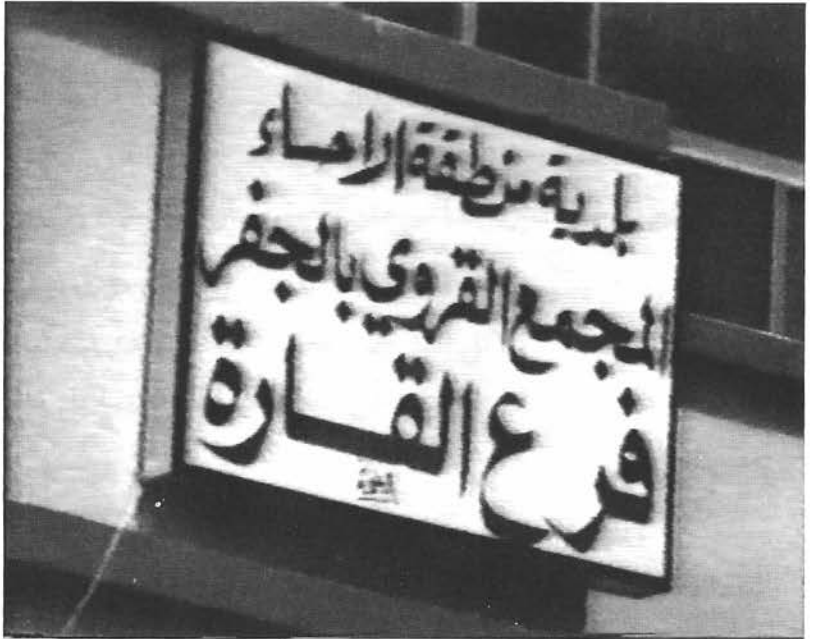 بلدية منطقة الاحساء
المجمع القروي بالجفر
فرع القارة